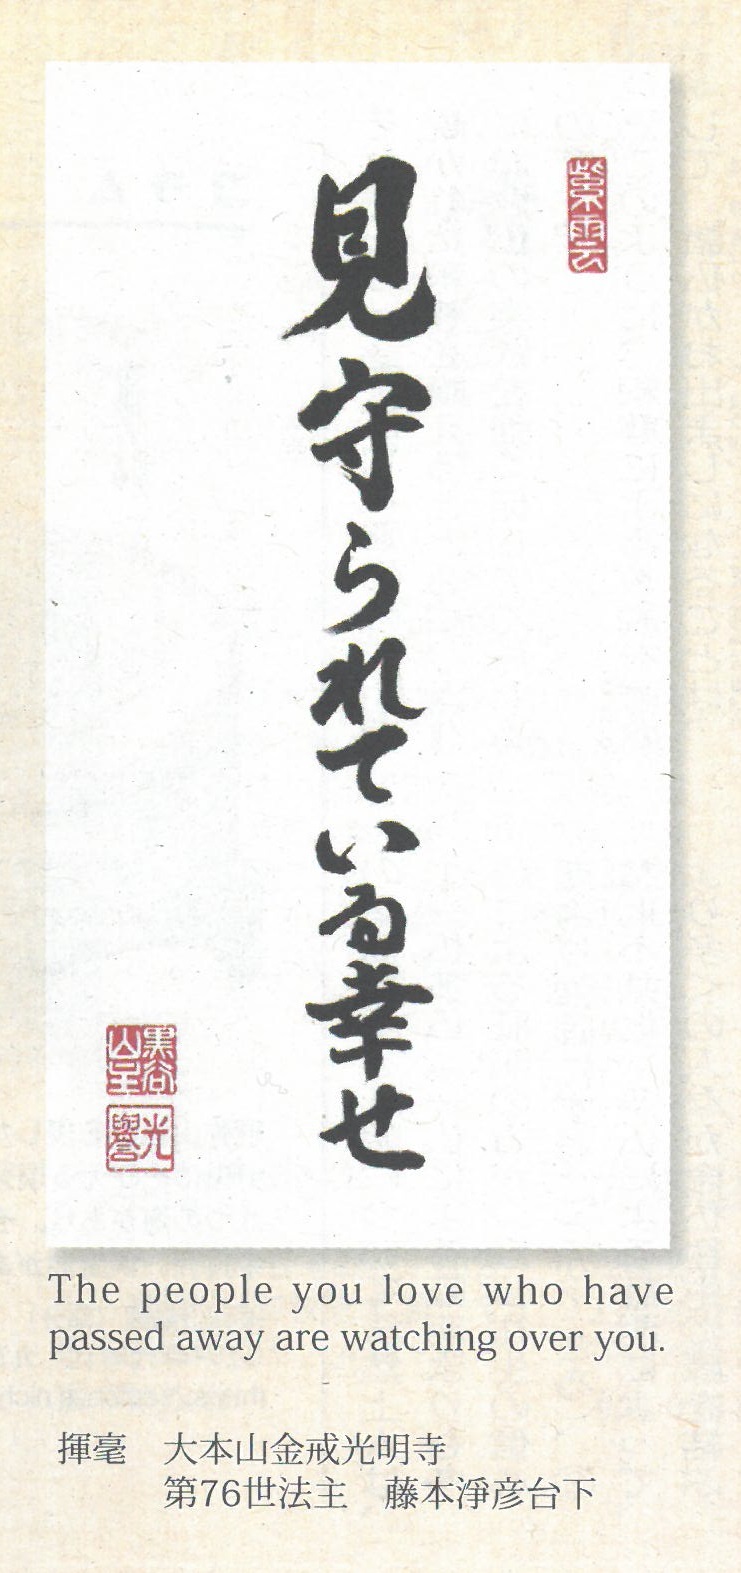 紫雲
見守られている幸せ
黒谷
山主
光
譽
The people you love who have
passed away are watching over you.
揮毫　大本山金戒光明寺
第76世法主　藤本淨彦台下